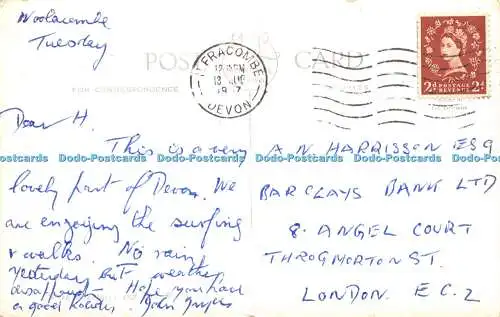 Woolacombe
Tuesday
POST CARD
FOR CORRESPONDENCE
ILFRACOMBE
DEVON
2d POSTAGE REVENUE 2d
Dear H.
This is a very
lovely part of Devon. We
are enjoying the surfing
& walks. No rain
yesterday but weather
Hope you have
a good holiday. John
A N HARRISSON ESQ
BARCLAYS BANK LTD
8. ANGEL COURT
THROGMORTON ST.
LONDON. E.C.2
Dodo-Postcards Dodo-Postcards Dodo-Postcards Dodo-Postcards Dodo-Postcards Dodo-Postcards